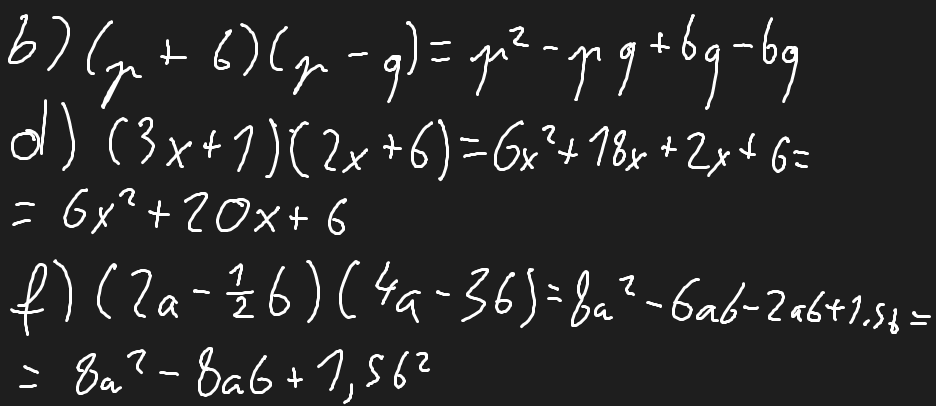 b) (p + 6)(p - q) = p² - pq + 6q - 6q
d) (3x + 1)(2x + 6) = 6x² + 18x + 2x + 6 =
= 6x² + 20x + 6
f) (2a - ½b)(4a - 3b) = 8a² - 6ab - 2ab + 1.5b =
= 8a² - 8ab + 1,5b²